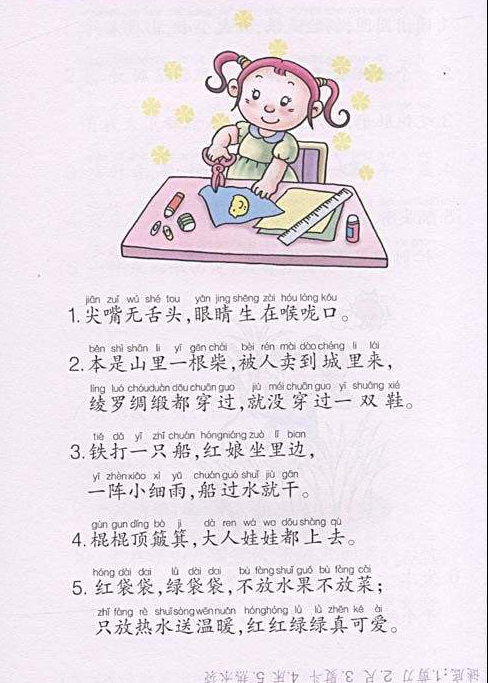 jiān zuǐ wú shé tou yǎn jing shēng zài hóu lóng kǒu
1. 尖嘴无舌头,眼睛生在喉咙口。
běn shì shān li yī gēn chái bèi rén mài dào chéng li lái
2. 本是山里一根柴,被人卖到城里来,
líng luó chóu duàn dōu chuān guo jiù méi chuān guo yī shuāng xié
绫罗绸缎都穿过,就没穿过一双鞋。
tiě dǎ yī zhī chuán hóng niáng zuò lǐ bian
3. 铁打一只船,红娘坐里边,
yī zhèn xiǎo xì yǔ chuán guò shuǐ jiù gān
一阵小细雨,船过水就干。
gùn gun dǐng bò ji dà ren wá wa dōu shàng qù
4. 棍棍顶簸箕,大人娃娃都上去。
hóng dài dai lǜ dài dai bù fàng shuǐ guǒ bù fàng cài
5. 红袋袋,绿袋袋,不放水果不放菜;
zhǐ fàng rè shuǐ sòng wēn nuǎn hóng hóng lǜ lǜ zhēn kě ài
只放热水送温暖,红红绿绿真可爱。
谜底:1.剪刀 2.尺 3.熨斗 4.床 5.热水袋